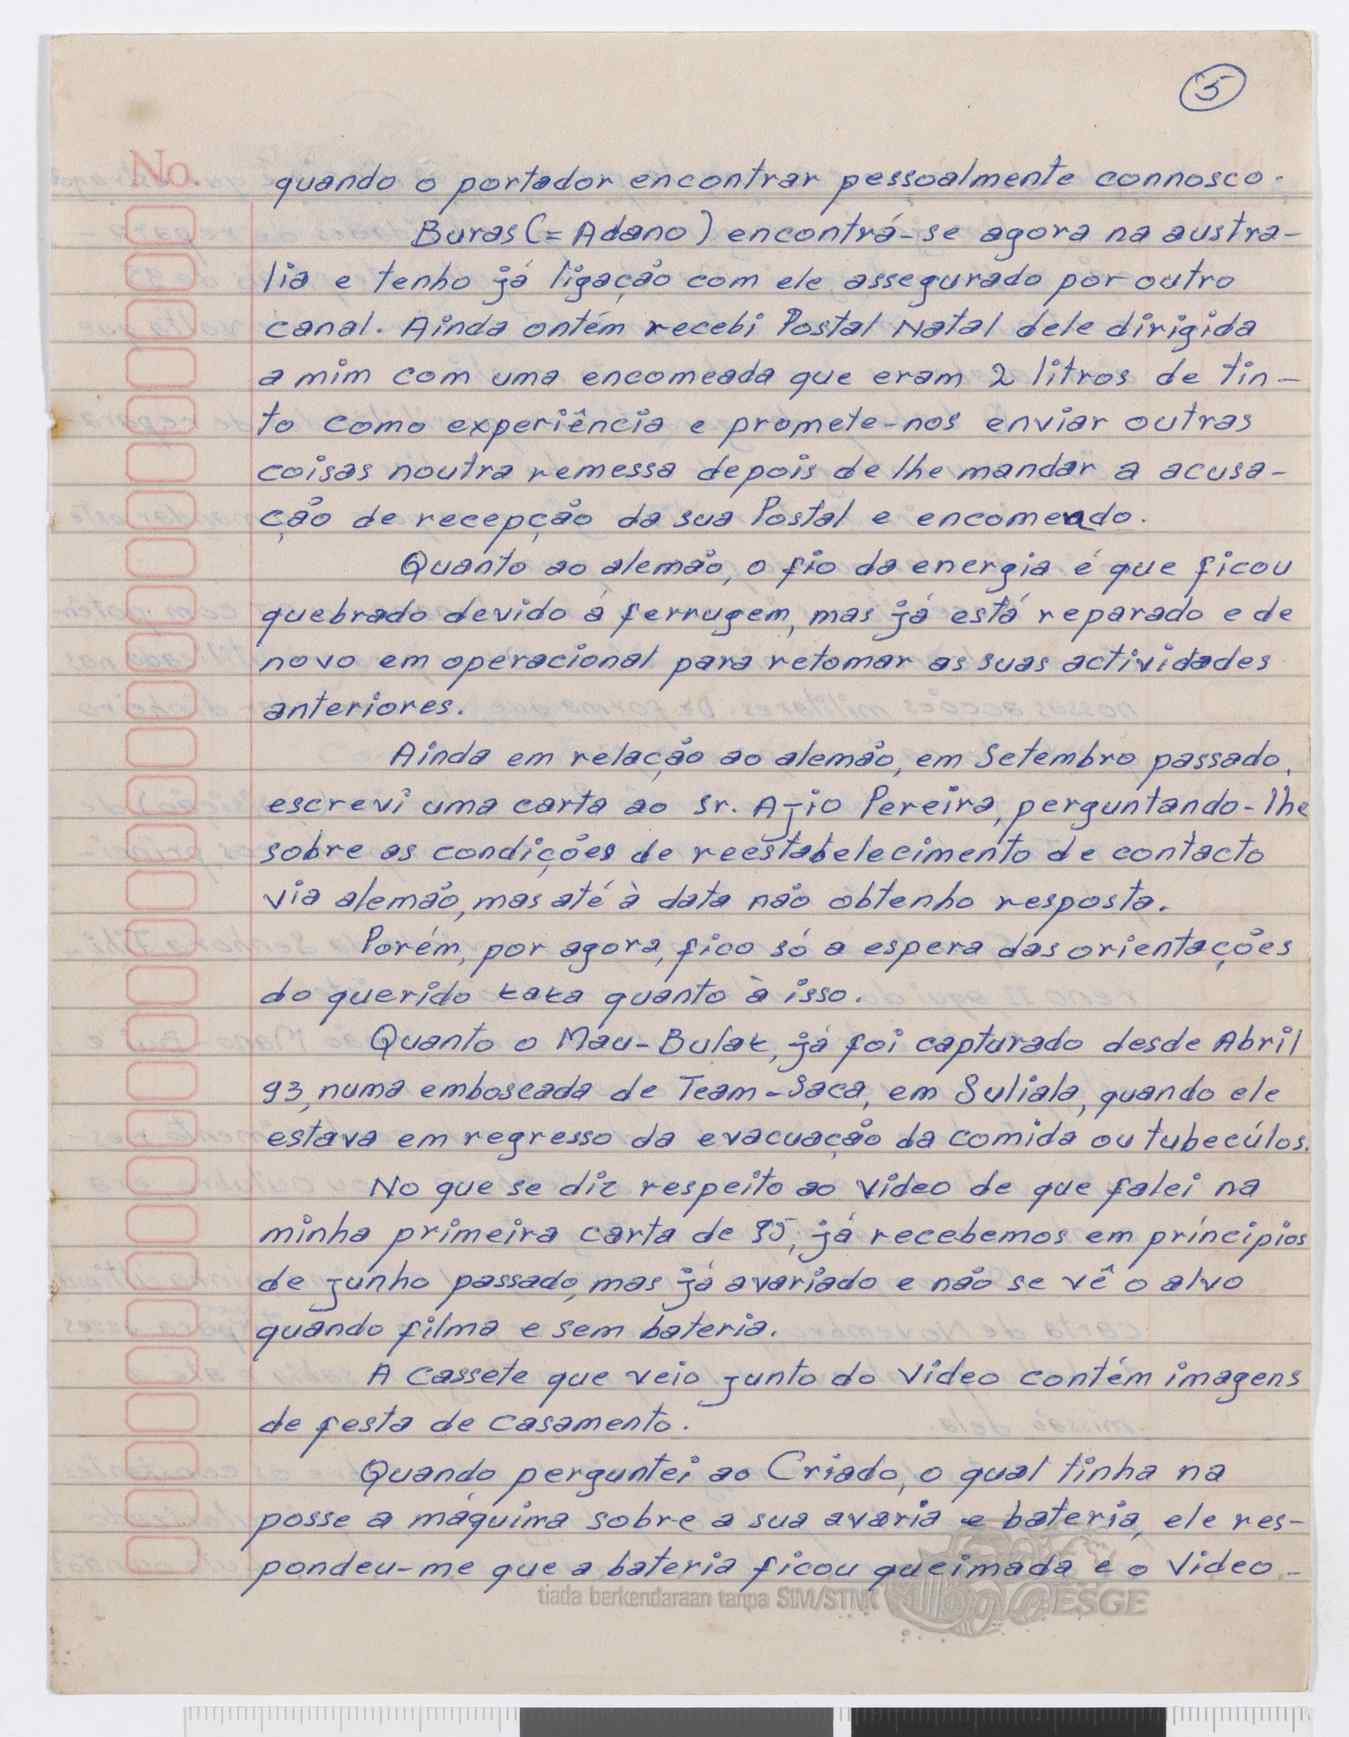 5
No.
quando o portador encontrar pessoalmente connosco.
Buras (= Adano) encontrá-se agora na austra-
lia e tenho já ligação com ele assegurado por outro
canal. Ainda ontém recebi Postal Natal dele dirigida
a mim com uma encomeada que eram 2 litros de tin-
to como experiência e promete-nos enviar outras
coisas noutra remessa depois de lhe mandar a acusa-
ção de recepção da sua Postal e encomendo.
Quanto ao alemão, o fio da energia é que ficou
quebrado devido á ferrugem, mas já está reparado e de
novo em operacional para retomar as suas actividades
anteriores.
Ainda em relação ao alemão, em Setembro passado,
escrevi uma carta ao sr. Ajio Pereira, perguntando-lhe
sobre as condições de reestabelecimento de contacto
via alemão, mas até à data não obtenho resposta.
Porém, por agora, fico só a espera das orientações
do querido kaka quanto à isso.
Quanto o Mau-Bulak, já foi capturado desde Abril
93, numa emboscada de Team-Saca, em Suliala, quando ele
estava em regresso da evacuação da comida ou tubecúlos.
No que se diz respeito ao video de que falei na
minha primeira carta de 95, já recebemos em príncipios
de junho passado, mas já avariado e não se vê o alvo
quando filma e sem bateria.
A cassete que veio junto do video contém imagens
de festa de casamento.
Quando perguntei ao Criado, o qual tinha na
posse a máquina sobre a sua avaria e bateria, ele res-
pondeu-me que a bateria ficou queimada e o video -
tiada berkendaraan tanpa SIM/STNK
ESGE